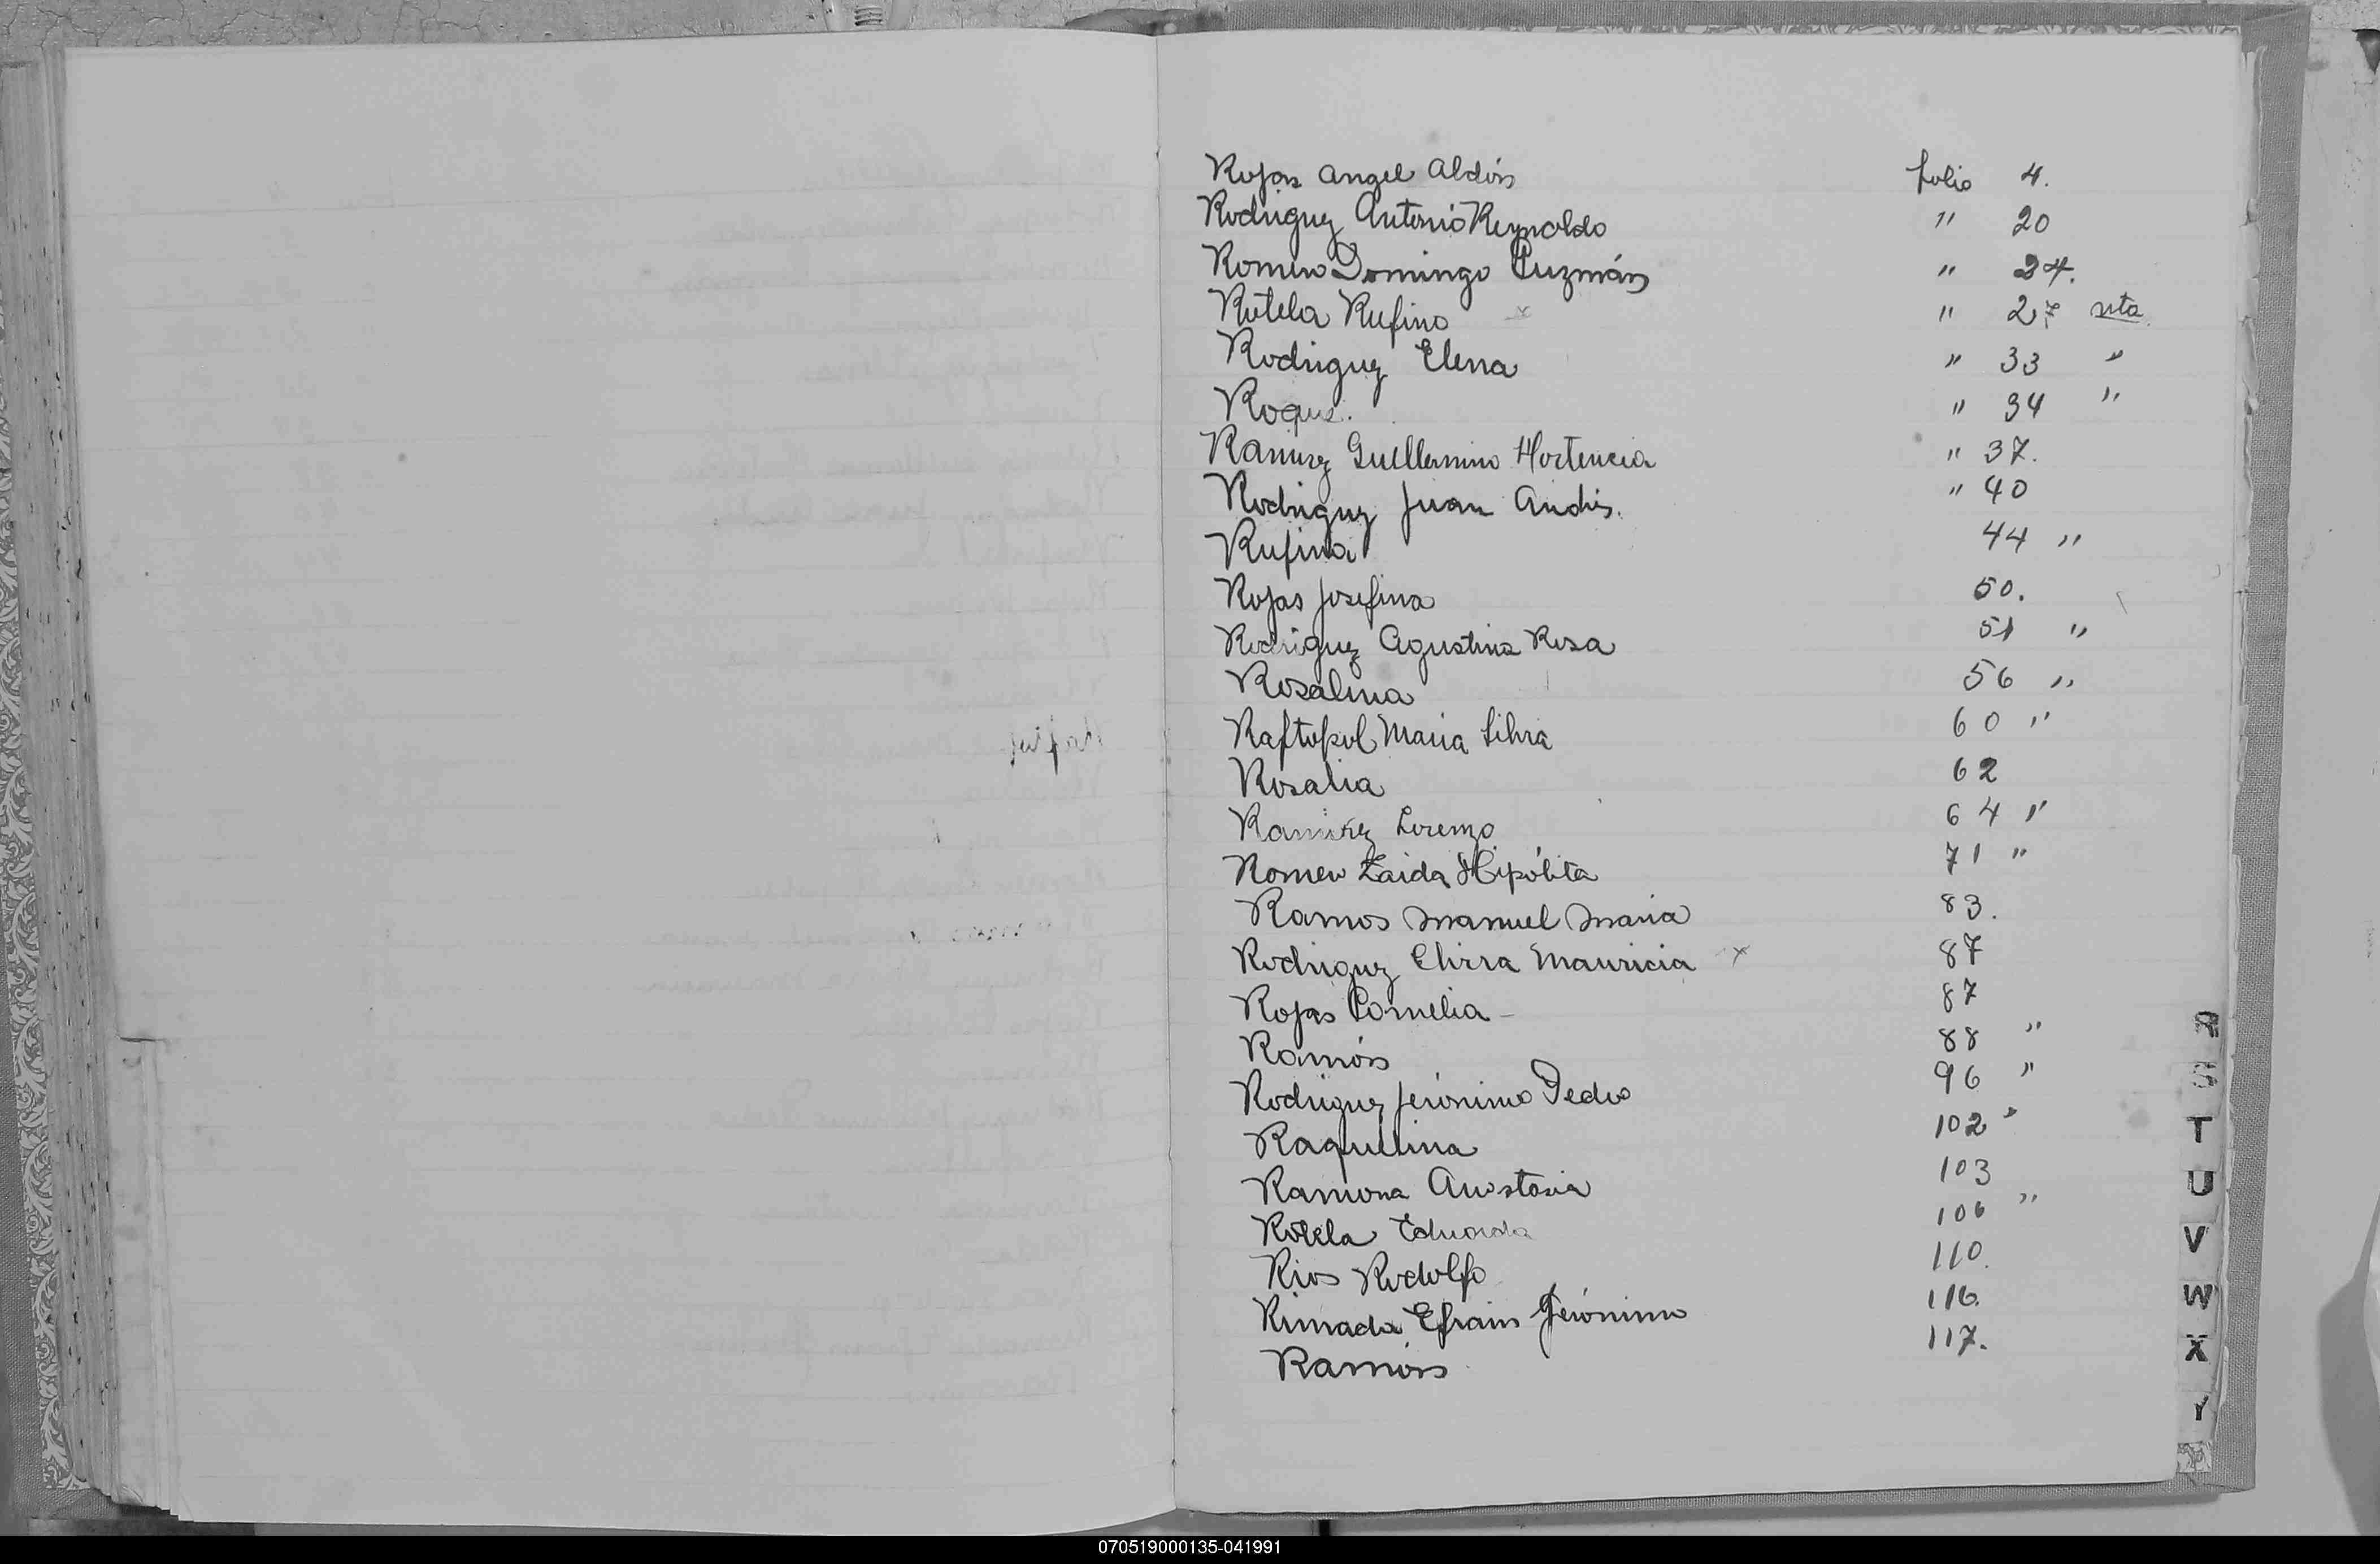 Rojas Angel Aldós folio 4.
Rodriguez Antonio Reynoldo " 20
Romero Domingo Guzmán " 24.
Rotela Rufino x " 27 vta.
Rodriguez Elena " 33 "
Roque. " 34 "
Ramirez Guillermino Hortencia " 37.
Rodriguez Juan Andrés. " 40
Rufina 44 "
Rojas Josefina 50.
Rodriguez Agustina Rosa 51 "
Rosalina 56 "
Raftopol Maria Silvia 60 "
Rosalia 62
Ramirez Lorenzo 64 "
Romero Zaida Hipólita 71 "
Ramos Manuel Maria 83.
Rodriguez Elvira Mauricia x 87
Rojas Cornelia - 87
Ramón 88 "
Rodriguez Jerónimo Pedro 96 "
Raquelina 102 "
Ramona Anastasia 103
Rotela Eduarda 106 "
Rios Rodolfo 110.
Rimada Efrain Jerónimo 116.
Ramón 117.
R
S
T
U
V
W
X
Y
070519000135-041991